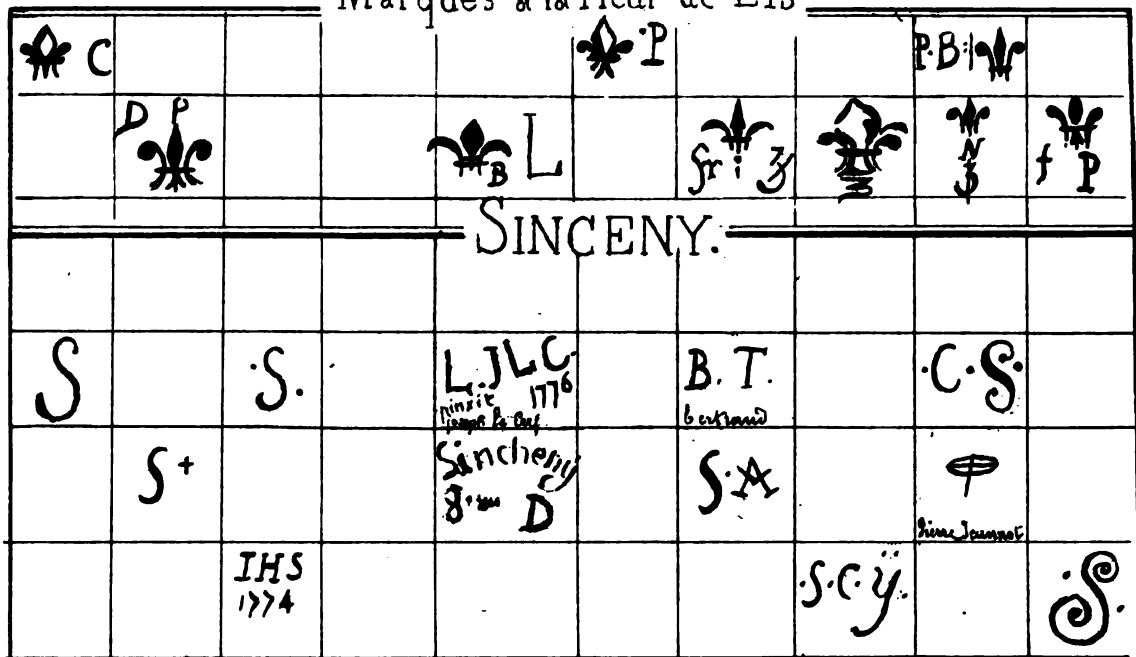 Marques à la fleur de Lis
C
·P
P·B·
D P
B L
fr i Z
N
3
f P
SINCENY.
S
·S.
L.J L C.
1776
pinxit
joseph le Cerf
B. T.
bertrand
·C·S·
S+
Sincheny
D
S·A
pierre Jeannot
IHS
1774
·S·C·ÿ.
·S·